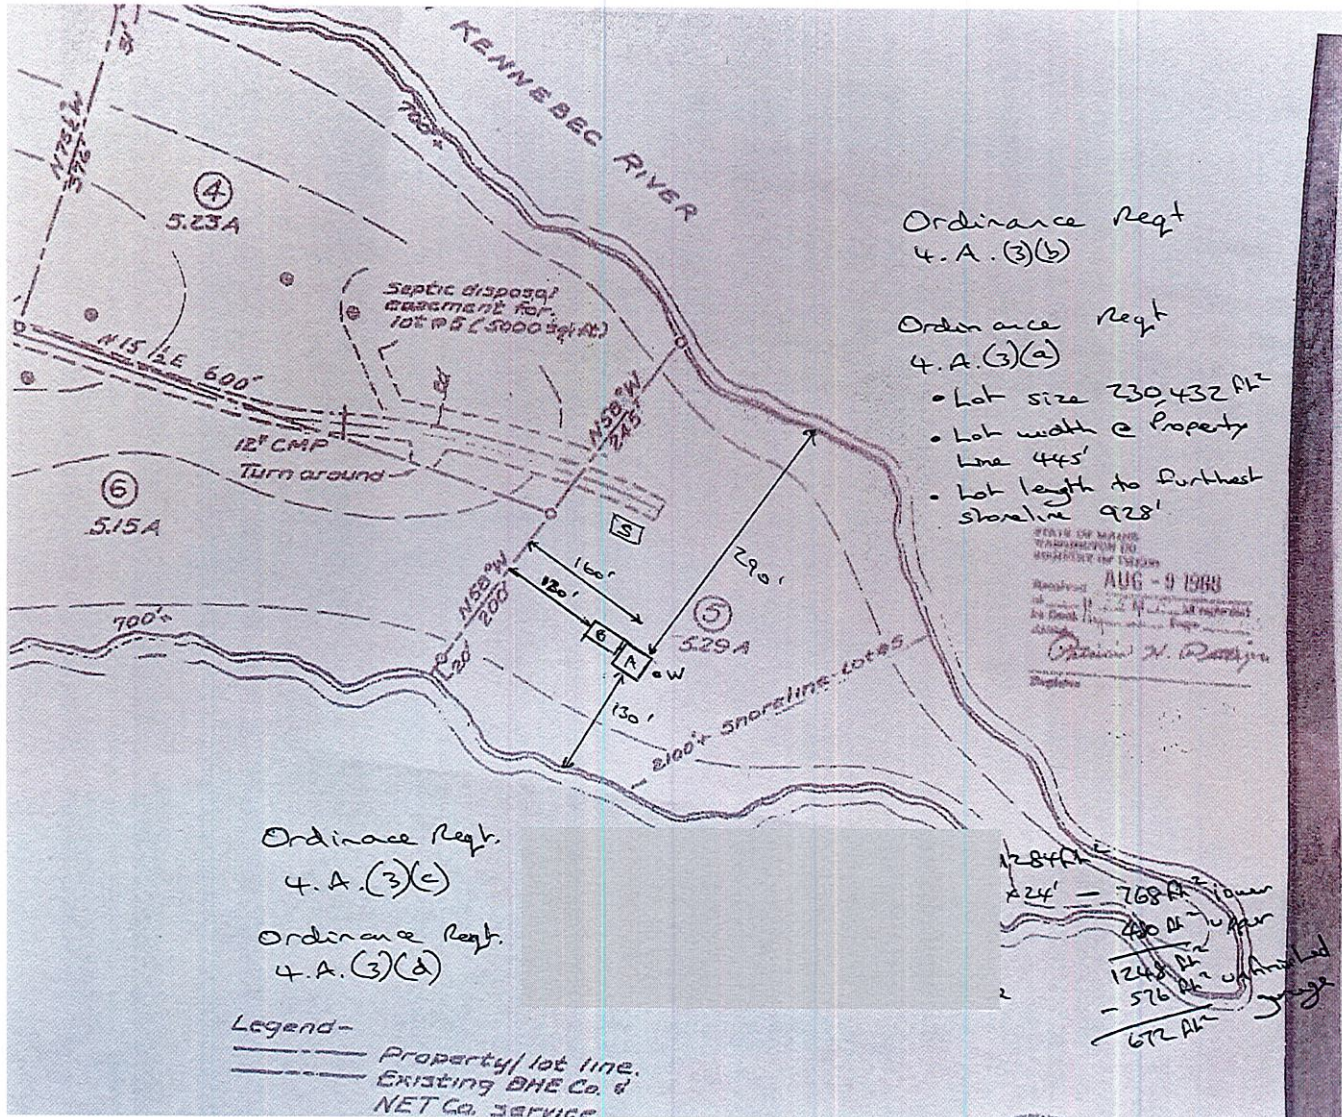 KENNEBEC RIVER
31'
N75½°W
376'
700'±
④
5.23A
Septic disposal
easement for
lot #5 (5000 sq. ft.)
N15½E 600'
12" CMP
Turn around
⑥
5.15A
N58°W
245'
N58°W
200'
20'
700'±
S
160'
120'
G
A
•W
290'
130'
⑤
5.29A
2100'± Shoreline-Lot #5
Ordinance Reqt
4.A.(3)(b)
Ordinance Reqt
4.A.(3)(a)
• Lot size 230,432 ft²
• Lot width @ Property
Line 445'
• Lot length to furthhest
shoreline 928'
STATE OF MAINE
WASHINGTON
REGISTRY OF DEEDS
Received AUG - 9 1988
Ordinace Reqt.
4.A.(3)(c)
Ordinance Reqt.
4.A.(3)(d)
1284 ft²
x24' — 768 ft² lower
480 ft² upper
1248 ft²
- 576 ft² unfinished
garage
672 ft²
Legend-
Property/lot line.
Existing BHE Co. &
NET Co. service